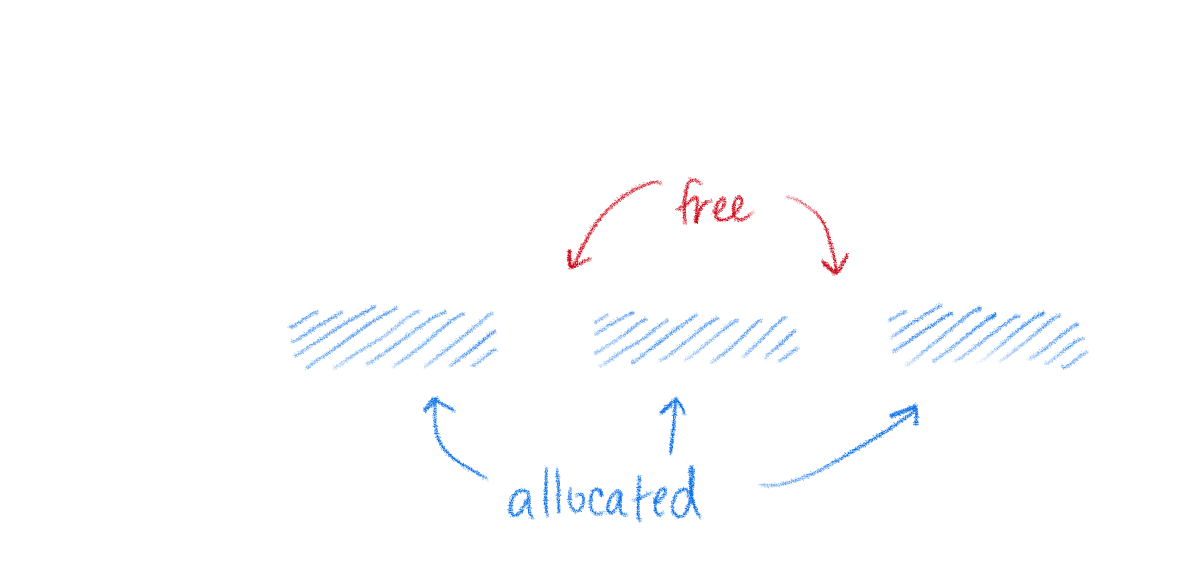 free
allocated